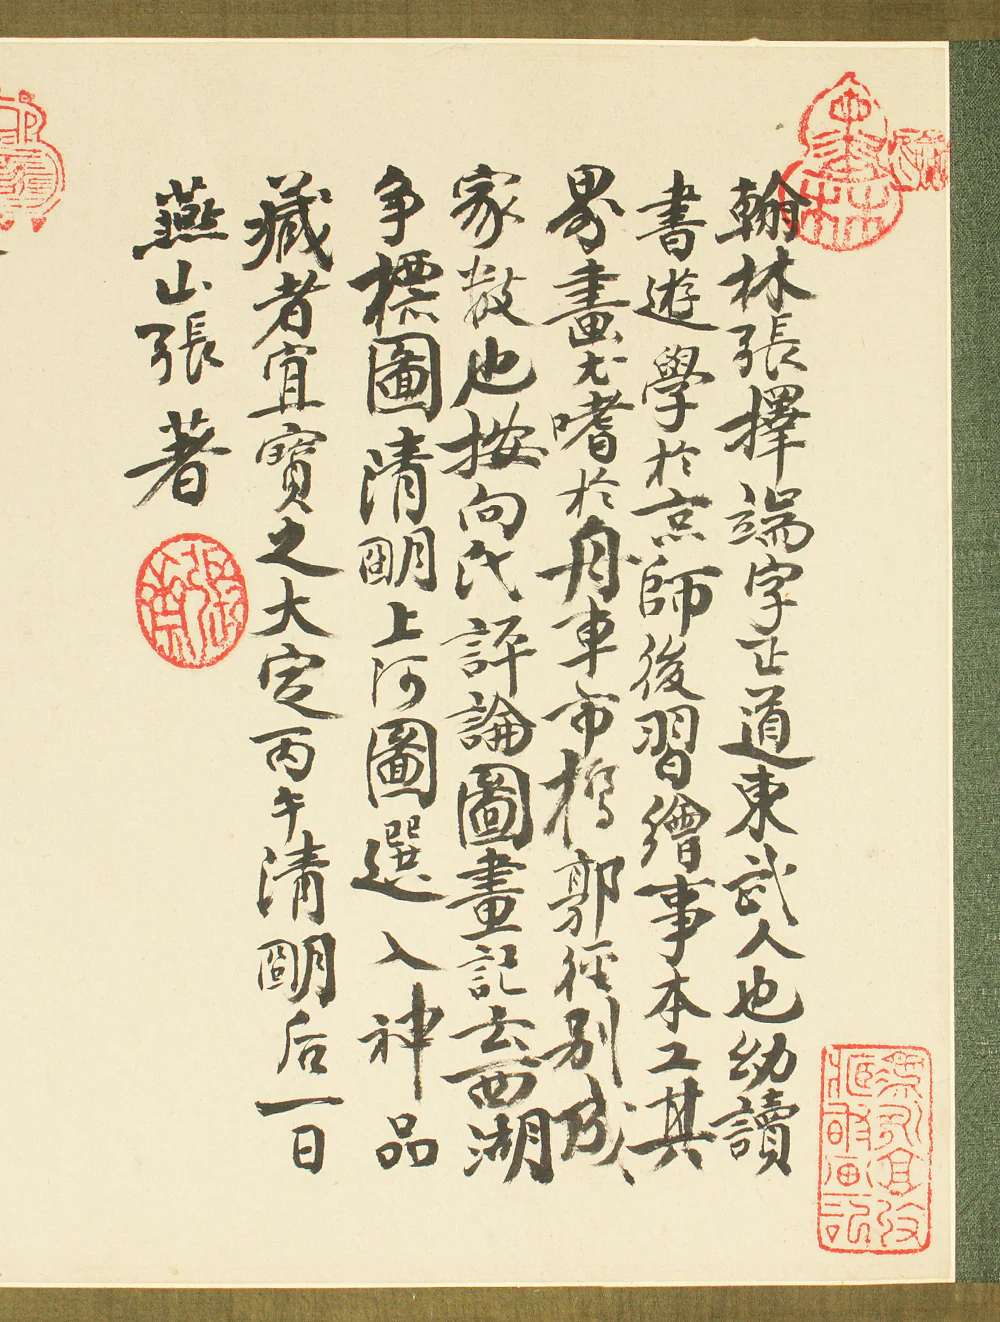 翰林張擇端字正道東武人也幼讀
書遊學於京師後習繪事本工其
界畫尤嗜於舟車市橋郭徑別成
家數也按向氏評論圖畫記云西湖
争標圖清明上河圖選入神品
藏者宜寶之大定丙午清明后一日
燕山張著